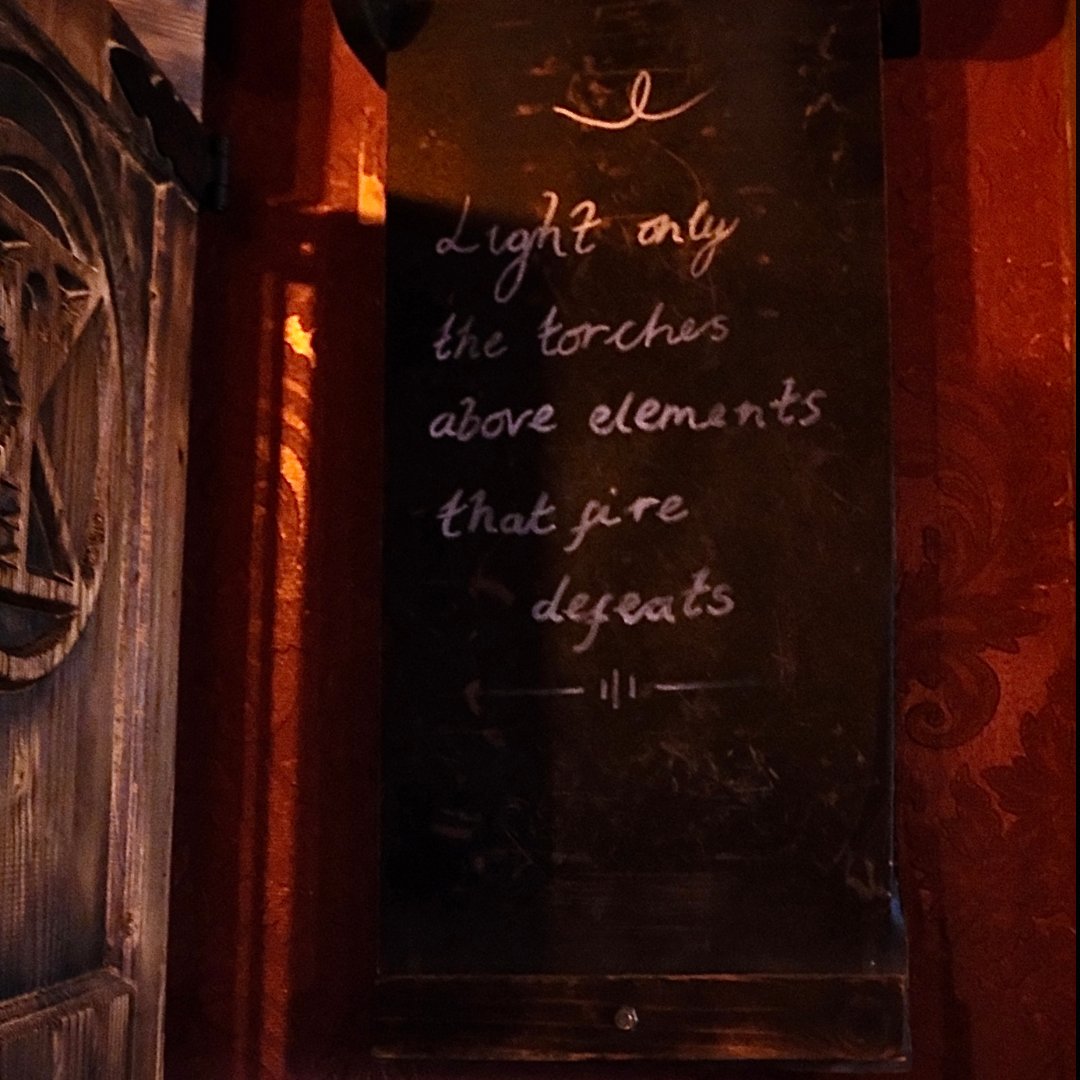 Light only
the torches
above elements
that fire
defeats